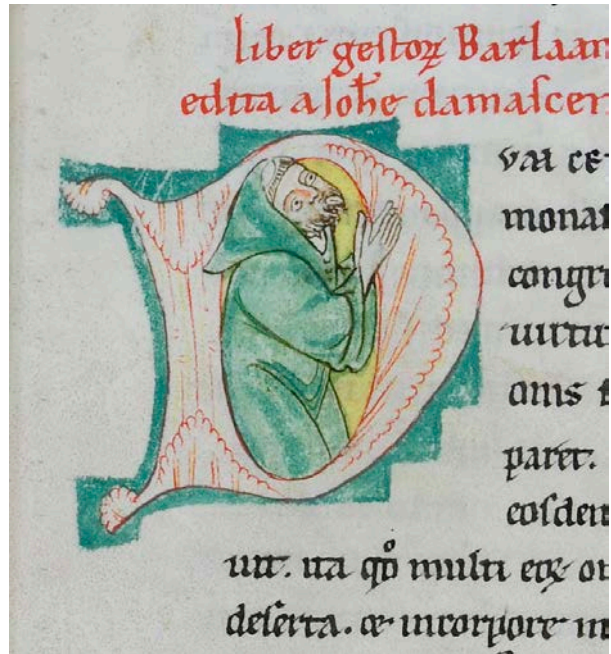 liber gestoꝝ Barlaam
edita a Ioh̅e damascen
D
vaı ce
monas
congr
uirtu
onis
paret.
eosdem
uit. ita qđ multi eoꝝ
deserta. ce incorpore in